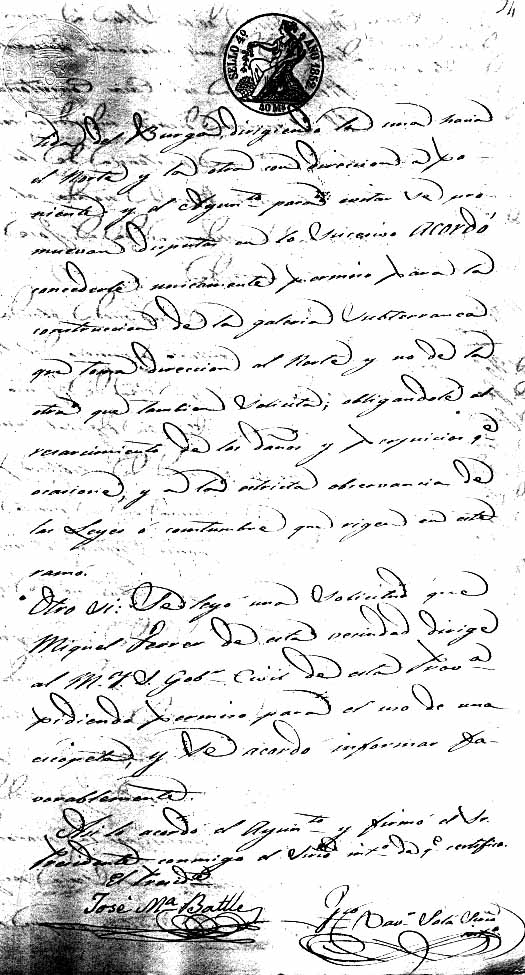 SELLO 4º AÑO 1882
40 Mil
del Burgar dirigiendo la una hacia
el Norte y la otra con direccion a Po-
niente y el Ayunto para evitar se pro-
muevan disputas en lo sucesivo acordó
concederle unicamente permiso para la
construccion de la galeria subterranea
que toma direccion al Norte y no de la
otra que tambien solicita; obligandole al
resarcimiento de los daños y perjuicios qe
ocasione, y a la estricta observancia de
las Leyes ó constumbre que rigen en este
ramo.
Otro si: Se leyó una solicitud que
Miquel Ferrer de esta vecindad dirige
al M. Y. S. Gobr Civil de esta Prova
pidiendo permiso para el uso de una
escopeta, y se acordó informar fa-
vorablemente.
Asi lo acordó el Ayunto y firmó el Sr
Presidente conmigo el Srio into de qe certifico.
El Presidte
José Ma Batlle
Sola Srio